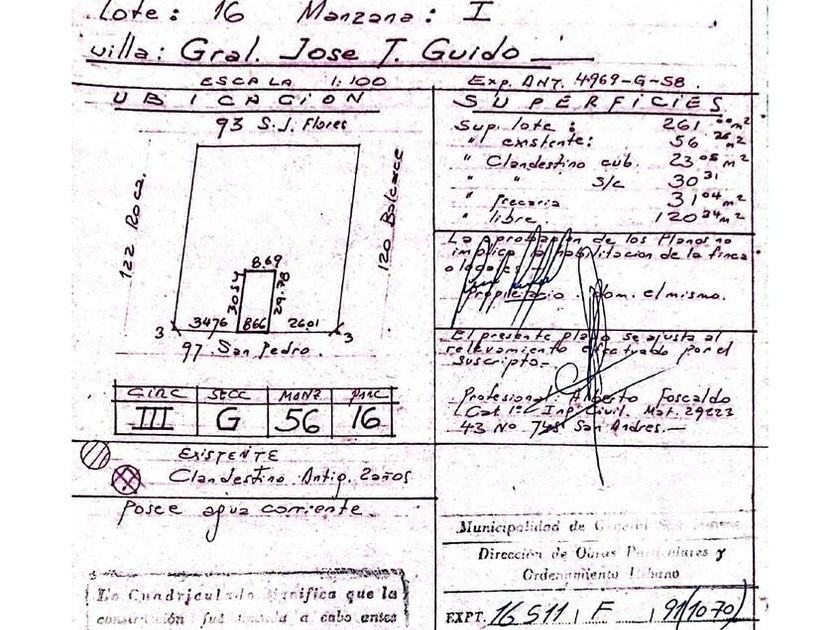 Lote: 16 Manzana: I
villa: Gral. Jose T. Guido
ESCALA 1:100
UBICACION
93 S.J. Flores
122 Roca.
120 Balcarce
8.69
30.54
29.78
3 3476 866 2601 3
97 San Pedro.
CIRC SECC MANZ PARC
III G 56 16
EXISTENTE
Clandestino Antig. 2años
posee agua corriente.
En Cuadriculado significa que la
construcción fue a cabo antes
Exp. ANT. 4969-G-58.
SUPERFICIES
Sup. lote: 261.00 m2
" existente: 56 m2
" Clandestino cub. 23.05 m2
" " s/c 30.31
" precaria 31.04 m2
" libre. 120.34 m2
La aprobación de los Planos no
implica la habilitacion de la finca
o locales
Propietario dom. el mismo.
El presente plano se ajusta al
relevamiento efectuado por el
suscripto-
Profesional: Alberto Foscaldo
Cat 1º Ing. Civil. Mat. 29223
43 No San Andres.-
Municipalidad de General San
Dirección de Obras Particulares y
Ordenamiento Urbano
EXPT. 16511 F 91(1070)